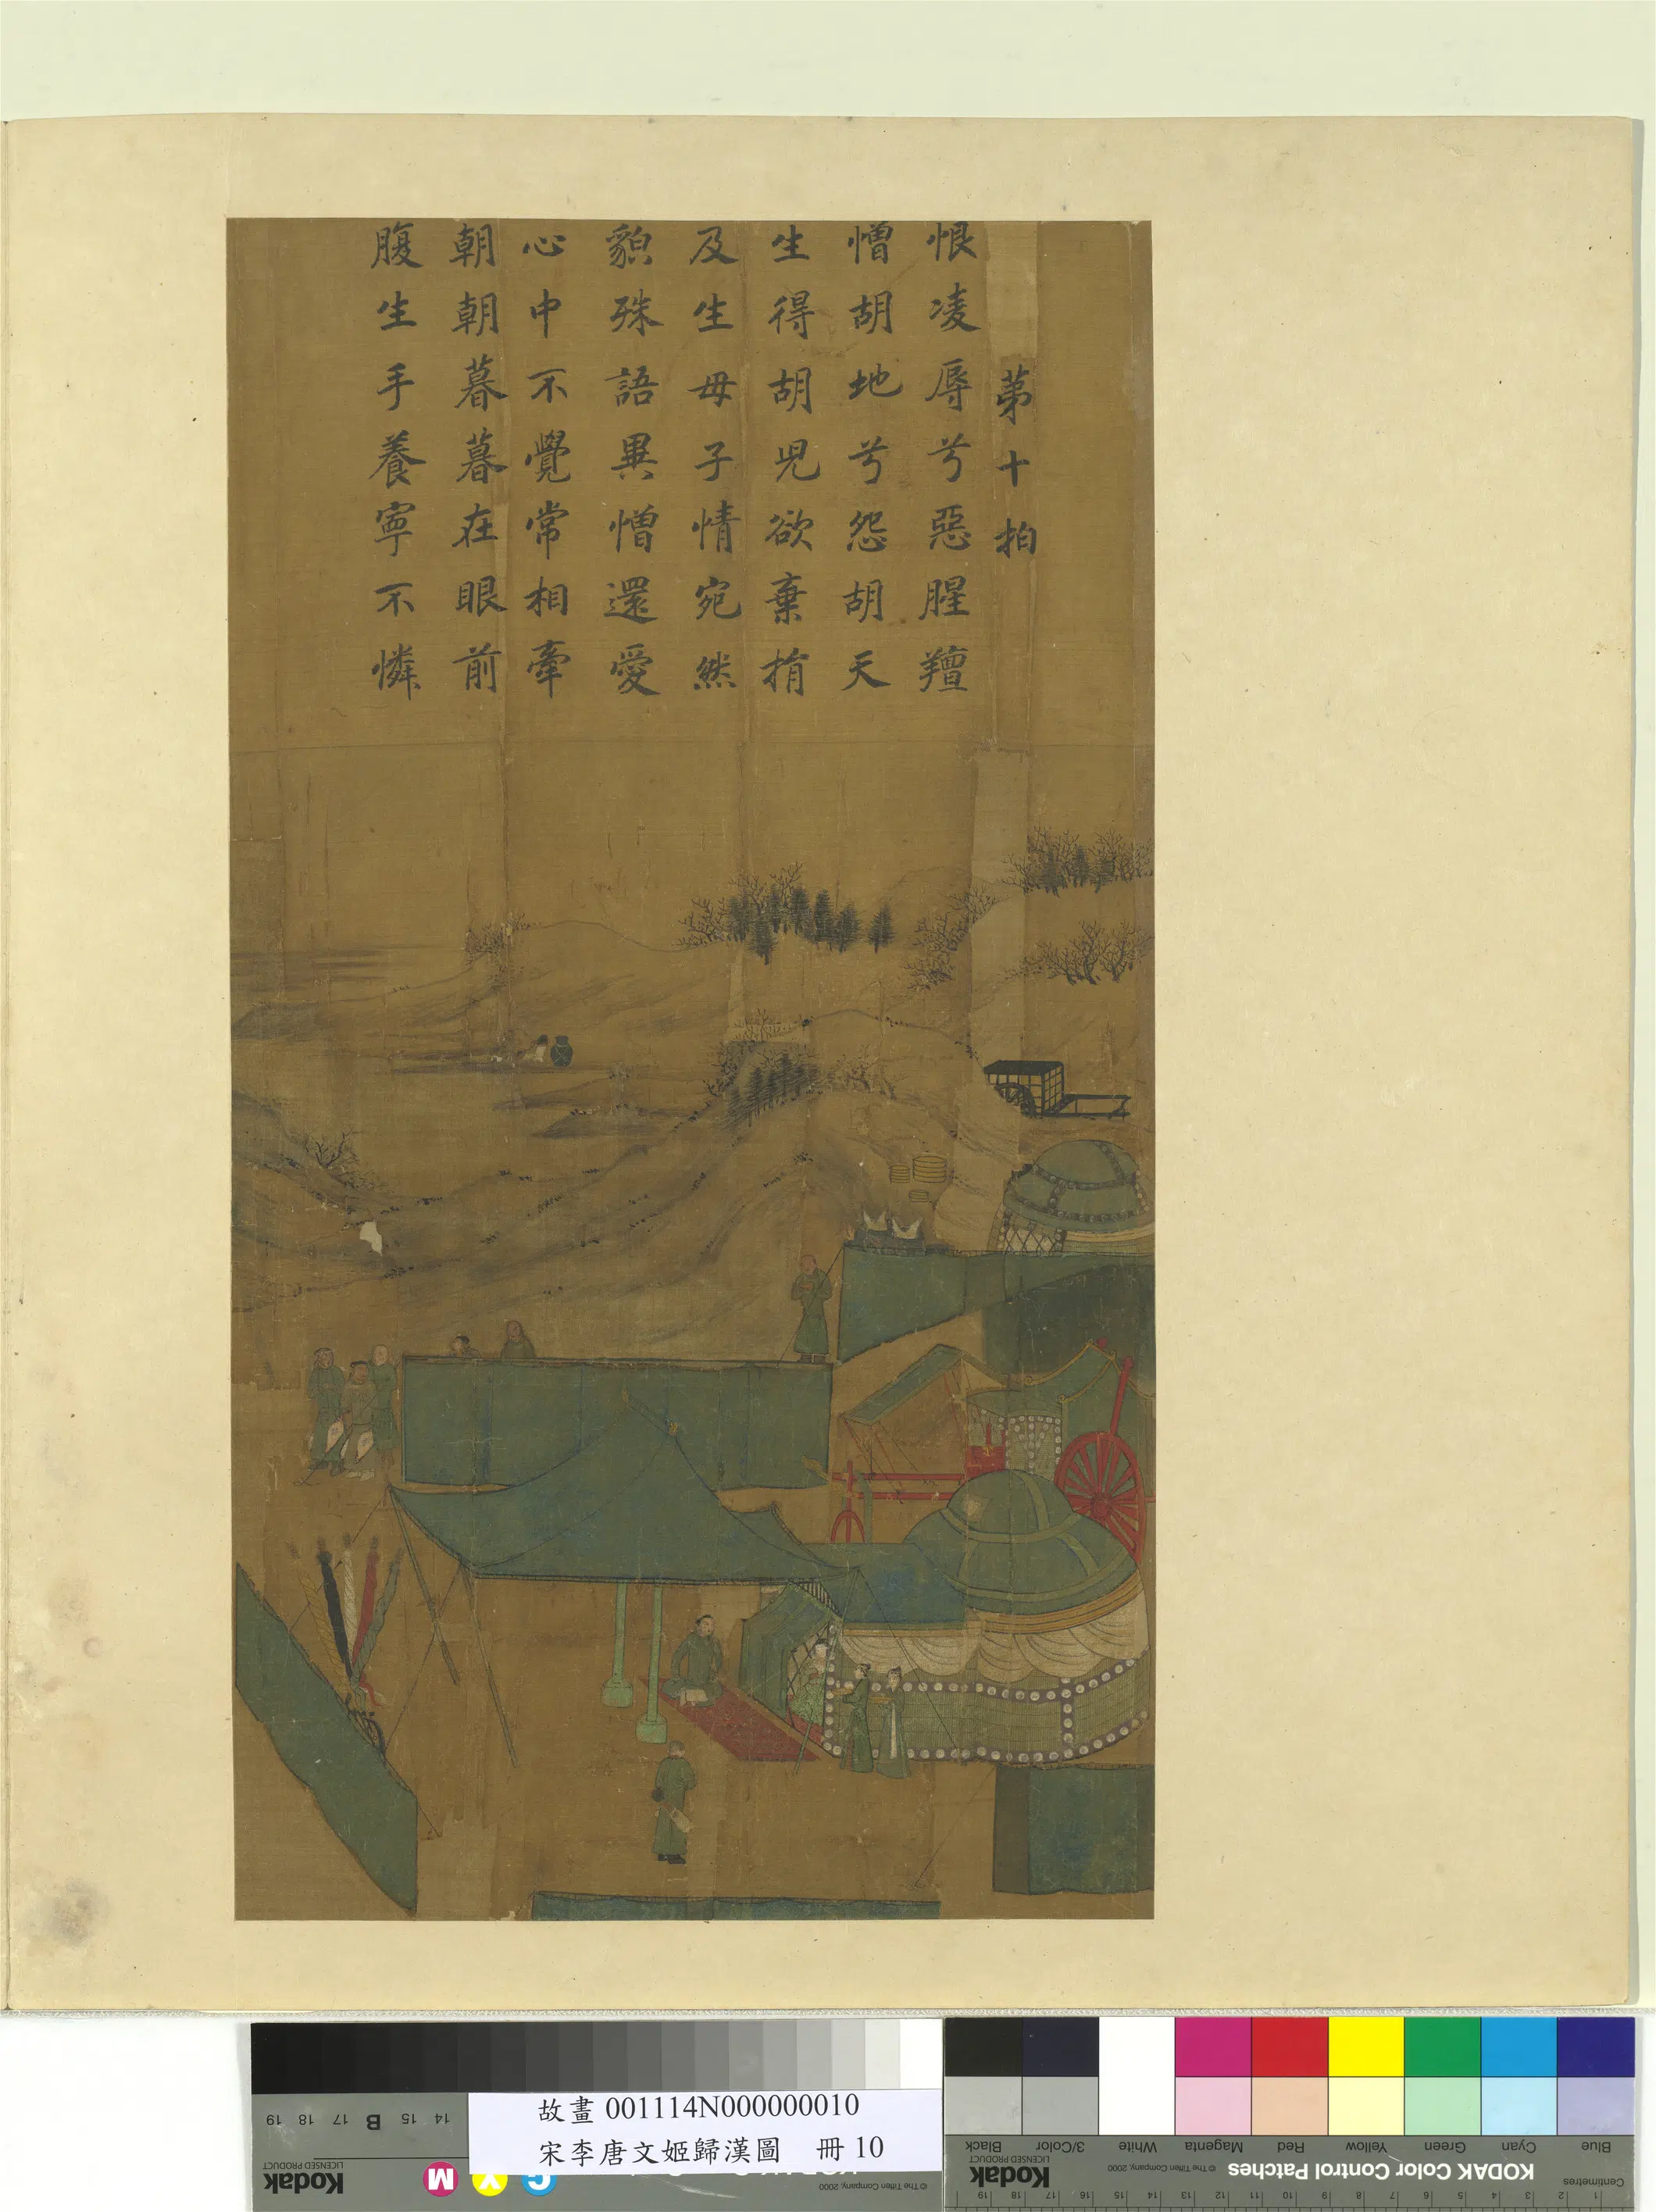 第十拍
恨凌辱兮惡腥羶
憎胡地兮怨胡天
生得胡兒欲棄捐
及生母子情宛然
貌殊語異憎還愛
心中不覺常相牽
朝朝暮暮在眼前
腹生手養寧不憐
故畫 001114N000000010
宋李唐文姬歸漢圖 冊 10
Kodak
LICENSED PRODUCT
19 18 17 B 15 14
M Y C
© The Tiffen Company, 2000
KODAK Color Control Patches
Blue Cyan Green Yellow Red Magenta White 3/Color Black
Kodak
LICENSED PRODUCT
© The Tiffen Company, 2000
Centimetres
1 2 3 4 5 6 7 8 9 10 11 12 13 14 15 16 17 18 19